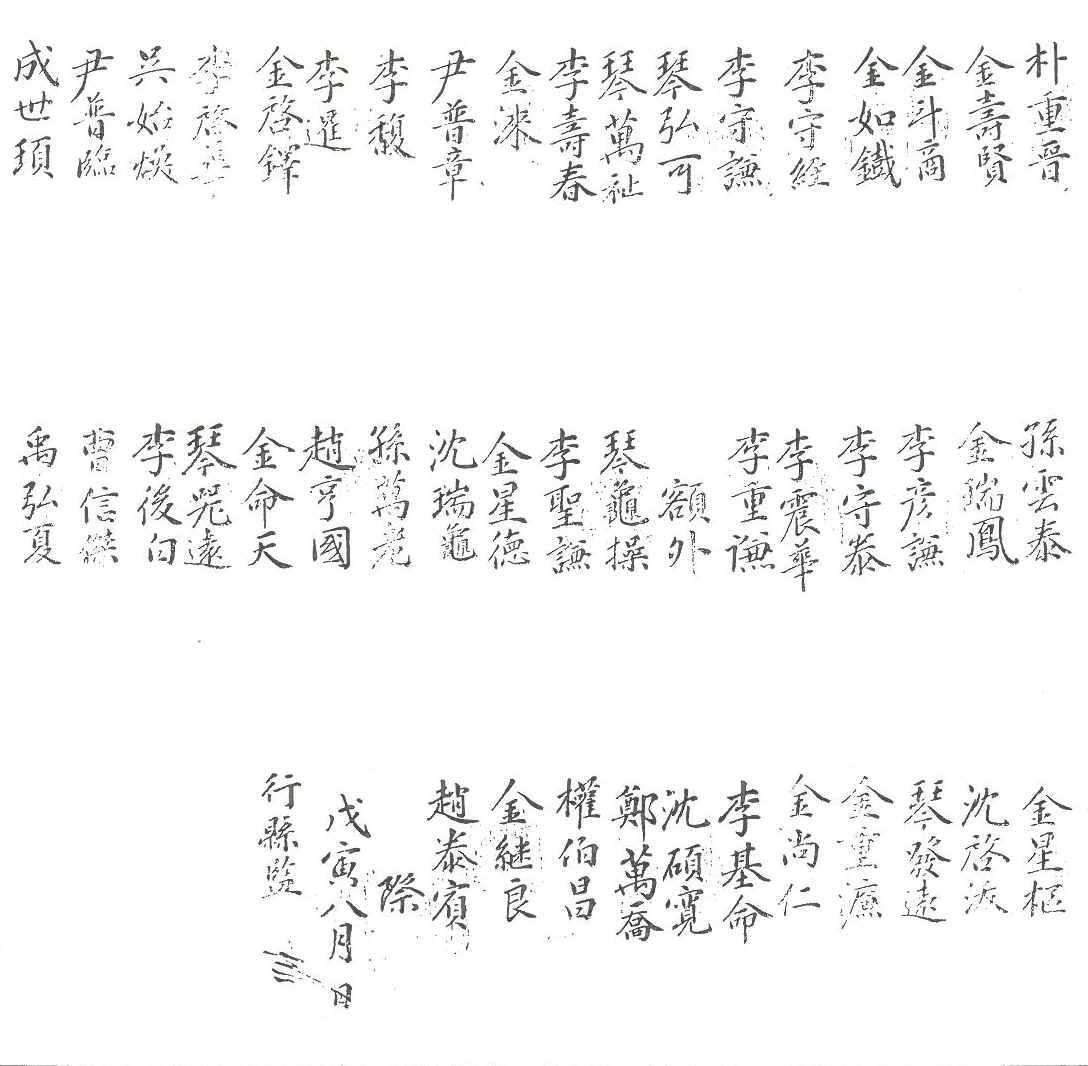 朴重晋
金壽賢
金斗商
金如鐵
李守經
李守謙
琴弘可
琴萬祉
李壽春
金
尹普章
李馥
李暹
金啓鐸
李啓
吳始煐
尹普臨
成世頊
孫雲泰
金瑞鳳
李彦謙
李守泰
李震華
李重謙
額外
琴龜操
李聖謙
金星德
沈瑞龜
孫萬老
趙亨國
金命天
琴	遠
李後白
曺信
禹弘夏
金星樞
沈啓派
琴發遠
金重
金尚仁
李基命
沈碩寬
鄭萬喬
權伯昌
金継良
趙泰賓
際
戊寅八月 日
行縣監